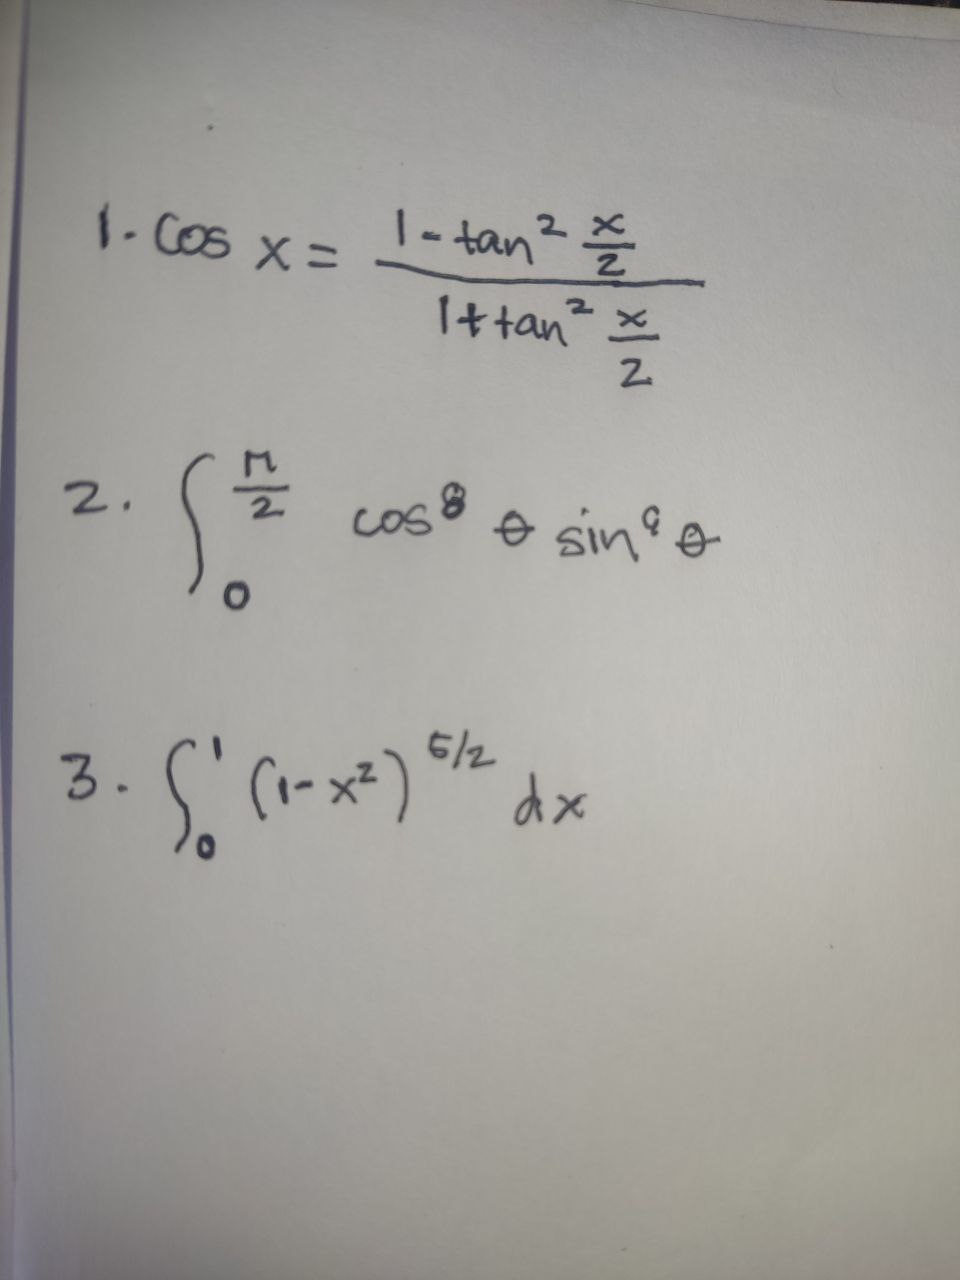 1. Cos x = (1 - tan² x/2) / (1 + tan² x/2)
2. ∫₀^(π/2) cos⁸ θ sin⁹ θ
3. ∫₀¹ (1 - x²)^(5/2) dx